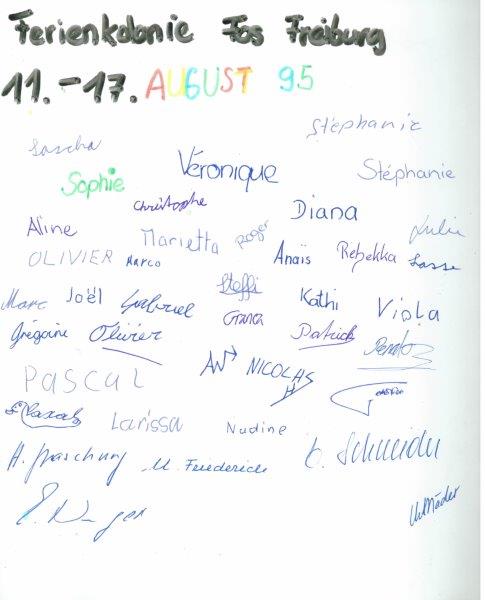 Ferienkolonie Fos Freiburg
11.-17. AUGUST 95
Stéphanie
Sascha
Véronique
Stéphanie
Sophie
Christophe
Diana
Aline
Marietta
Roger
Julie
OLIVIER
Marco
Anaïs
Rebekka
Lasse
Steffi
Marc
Joël
Gabriel
Kathi
Viola
Grégoire
Olivier
Patrick
NICOLAS
PASCAL
Larissa
Nadine
H. Fraschung
M. Friederich
C. Schneider